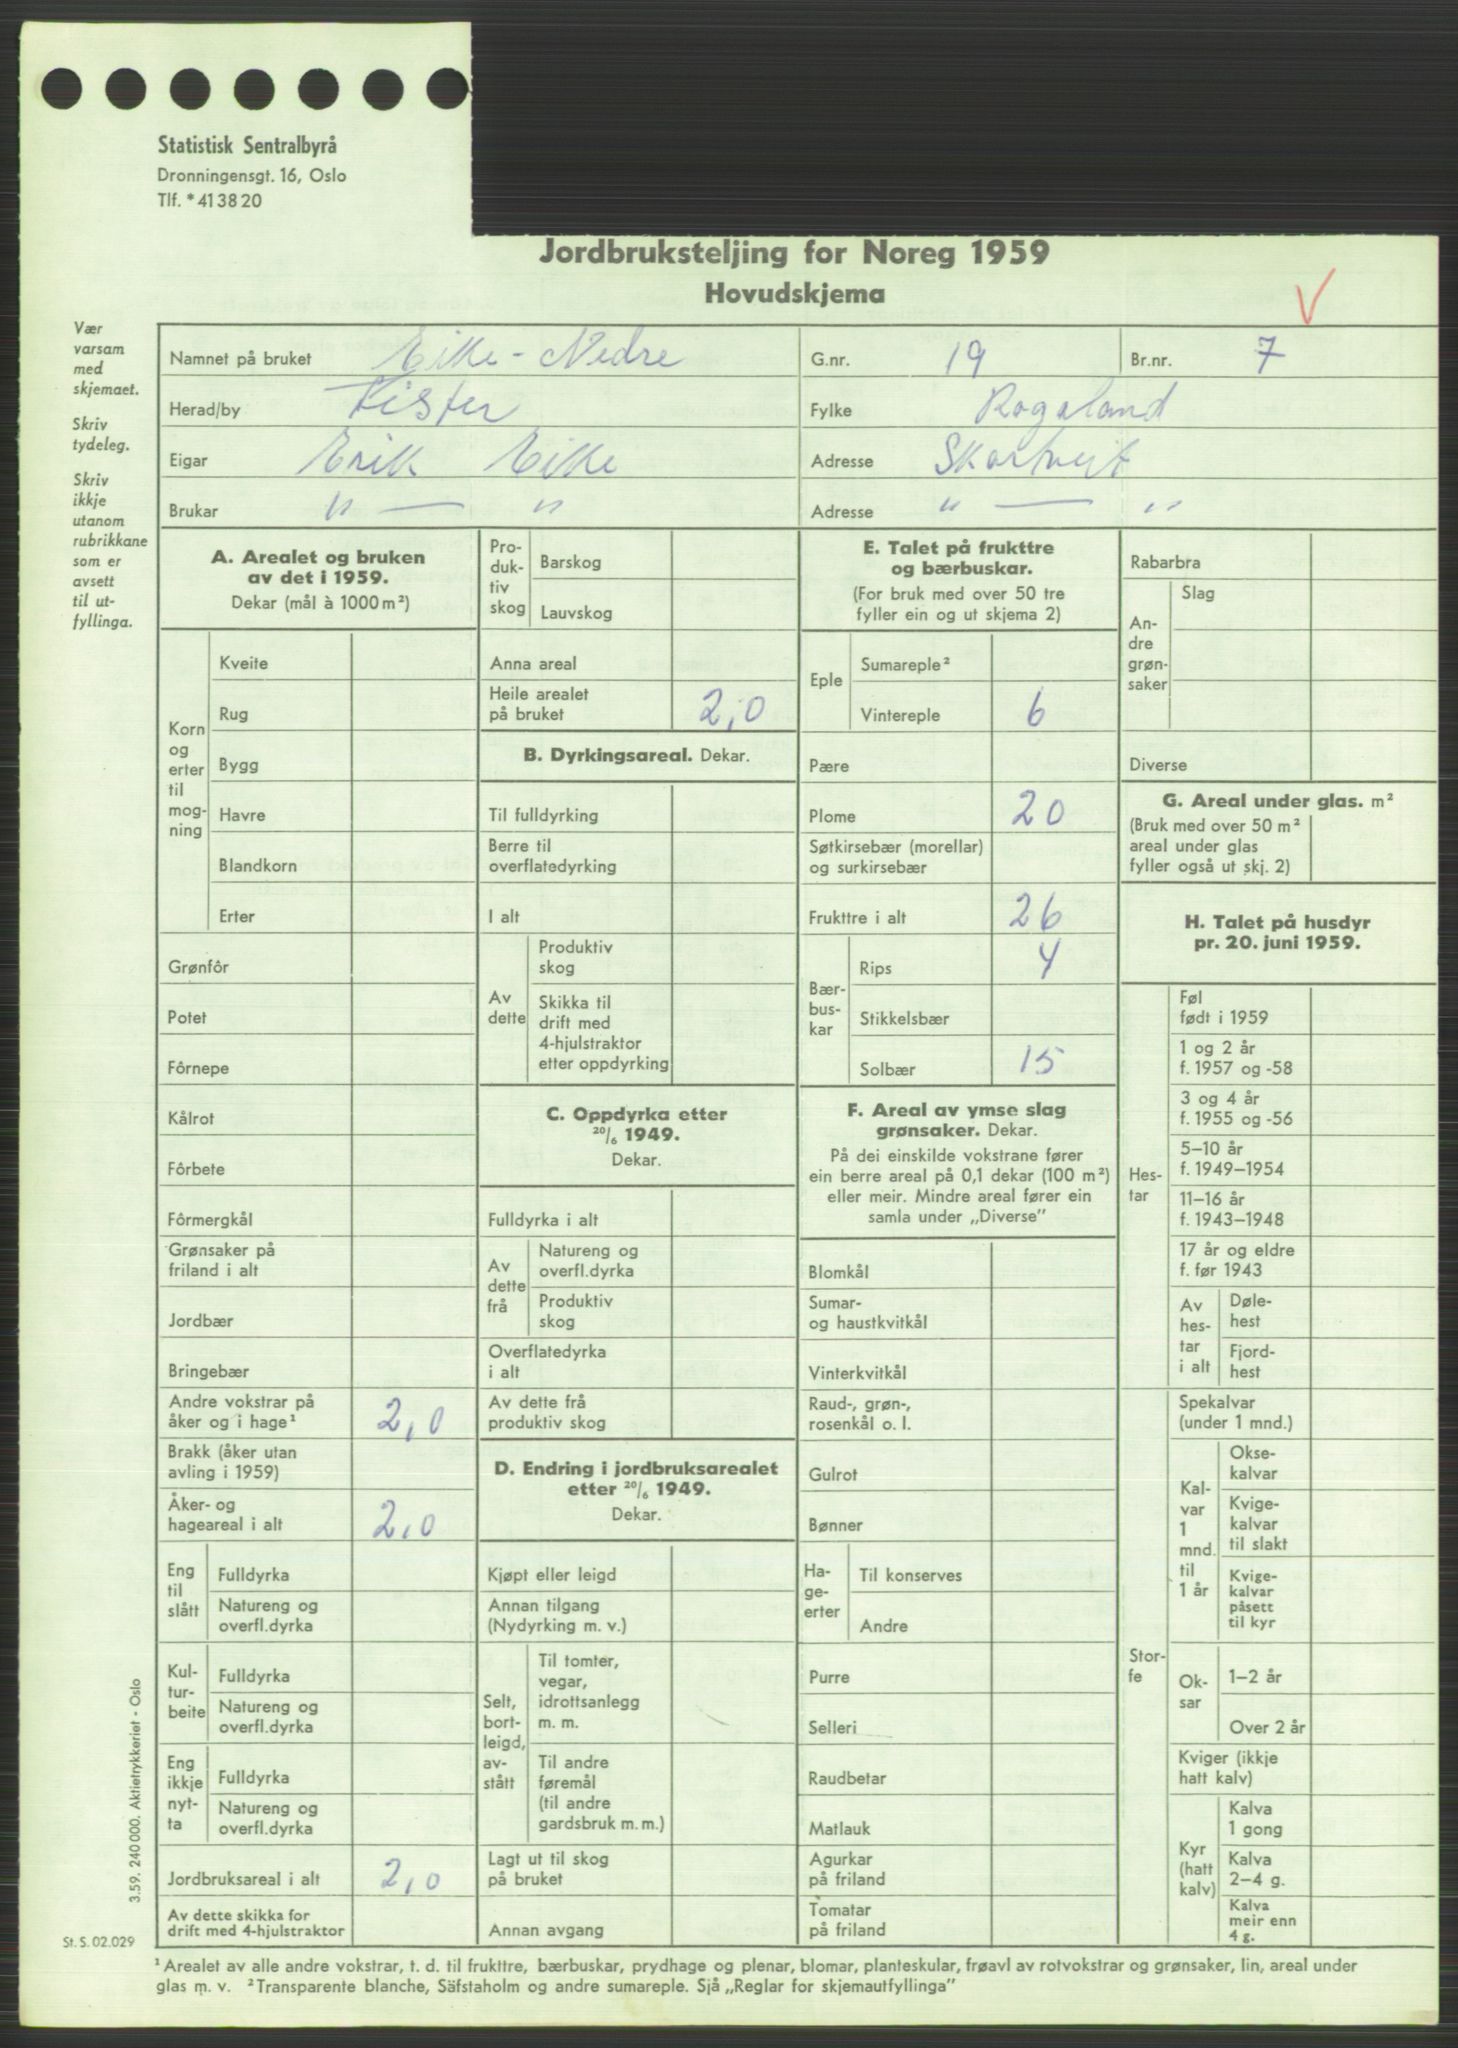 Statistisk Sentralbyrå
Dronningensgt. 16, Oslo
Tlf. * 41 38 20
Jordbruksteljing for Noreg 1959
Hovudskjema
V
Vær
varsam
med
skjemaet.
Skriv
tydeleg.
Skriv
ikkje
utanom
rubrikkane
som er
avsett
til ut-
fyllinga.
Namnet på bruket Eike - Nedre G.nr. 19 Br.nr. 7
Herad/by Fister Fylke Rogaland
Eigar Erik Eike Adresse
Brukar " — " Adresse " — "
A. Arealet og bruken
av det i 1959.
Dekar (mål à 1000 m²)
Korn
og
erter
til
mog-
ning
Kveite
Rug
Bygg
Havre
Blandkorn
Erter
Grønfôr
Potet
Fôrnepe
Kålrot
Fôrbete
Fôrmergkål
Grønsaker på
friland i alt
Jordbær
Bringebær
Andre vokstrar på
åker og i hage¹ 2,0
Brakk (åker utan
avling i 1959)
Åker- og
hageareal i alt 2,0
Eng
til
slått
Fulldyrka
Natureng og
overfl.dyrka
Kul-
tur-
beite
Fulldyrka
Natureng og
overfl.dyrka
Eng
ikkje
nyt-
ta
Fulldyrka
Natureng og
overfl.dyrka
Jordbruksareal i alt 2,0
Av dette skikka for
drift med 4-hjulstraktor
Pro-
duk-
tiv
skog
Barskog
Lauvskog
Anna areal
Heile arealet
på bruket 2,0
B. Dyrkingsareal. Dekar.
Til fulldyrking
Berre til
overflatedyrking
I alt
Av
dette
Produktiv
skog
Skikka til
drift med
4-hjulstraktor
etter oppdyrking
C. Oppdyrka etter
20/6 1949.
Dekar.
Fulldyrka i alt
Av
dette
frå
Natureng og
overfl.dyrka
Produktiv
skog
Overflatedyrka
i alt
Av dette frå
produktiv skog
D. Endring i jordbruksarealet
etter 20/6 1949.
Dekar.
Kjøpt eller leigd
Annan tilgang
(Nydyrking m. v.)
Selt,
bort-
leigd,
av-
stått
Til tomter,
vegar,
idrottsanlegg
m. m.
Til andre
føremål
(til andre
gardsbruk m. m.)
Lagt ut til skog
på bruket
Annan avgang
E. Talet på frukttre
og bærbuskar.
(For bruk med over 50 tre
fyller ein og ut skjema 2)
Eple
Sumareple²
Vintereple 6
Pære
Plome 20
Søtkirsebær (morellar)
og surkirsebær
Frukttre i alt 26
Bær-
bus-
kar
Rips 4
Stikkelsbær
Solbær 15
F. Areal av ymse slag
grønsaker. Dekar.
På dei einskilde vokstrane fører
ein berre areal på 0,1 dekar (100 m²)
eller meir. Mindre areal fører ein
samla under „Diverse”
Blomkål
Sumar-
og haustkvitkål
Vinterkvitkål
Raud-, grøn-,
rosenkål o. l.
Gulrot
Bønner
Ha-
ge-
erter
Til konserves
Andre
Purre
Selleri
Raudbetar
Matlauk
Agurkar
på friland
Tomatar
på friland
Rabarbra
An-
dre
grøn-
saker
Slag
Diverse
G. Areal under glas. m²
(Bruk med over 50 m²
areal under glas
fyller også ut skj. 2)
H. Talet på husdyr
pr. 20. juni 1959.
Hes-
tar
Føl
født i 1959
1 og 2 år
f. 1957 og -58
3 og 4 år
f. 1955 og -56
5–10 år
f. 1949–1954
11–16 år
f. 1943–1948
17 år og eldre
f. før 1943
Av
hes-
tar
i alt
Døle-
hest
Fjord-
hest
Stor-
fe
Spekalvar
(under 1 mnd.)
Kal-
var
1
mnd.
til
1 år
Okse-
kalvar
Kvige-
kalvar
til slakt
Kvige-
kalvar
påsett
til kyr
Ok-
sar
1–2 år
Over 2 år
Kviger (ikkje
hatt kalv)
Kyr
(hatt
kalv)
Kalva
1 gong
Kalva
2–4 g.
Kalva
meir enn
4 g.
3.59. 240 000. Aktietrykkeriet - Oslo
St. S. 02.029
¹ Arealet av alle andre vokstrar, t. d. til frukttre, bærbuskar, prydhage og plenar, blomar, planteskular, frøavl av rotvokstrar og grønsaker, lin, areal under
glas m. v. ² Transparente blanche, Säfstaholm og andre sumareple. Sjå „Reglar for skjemautfyllinga”